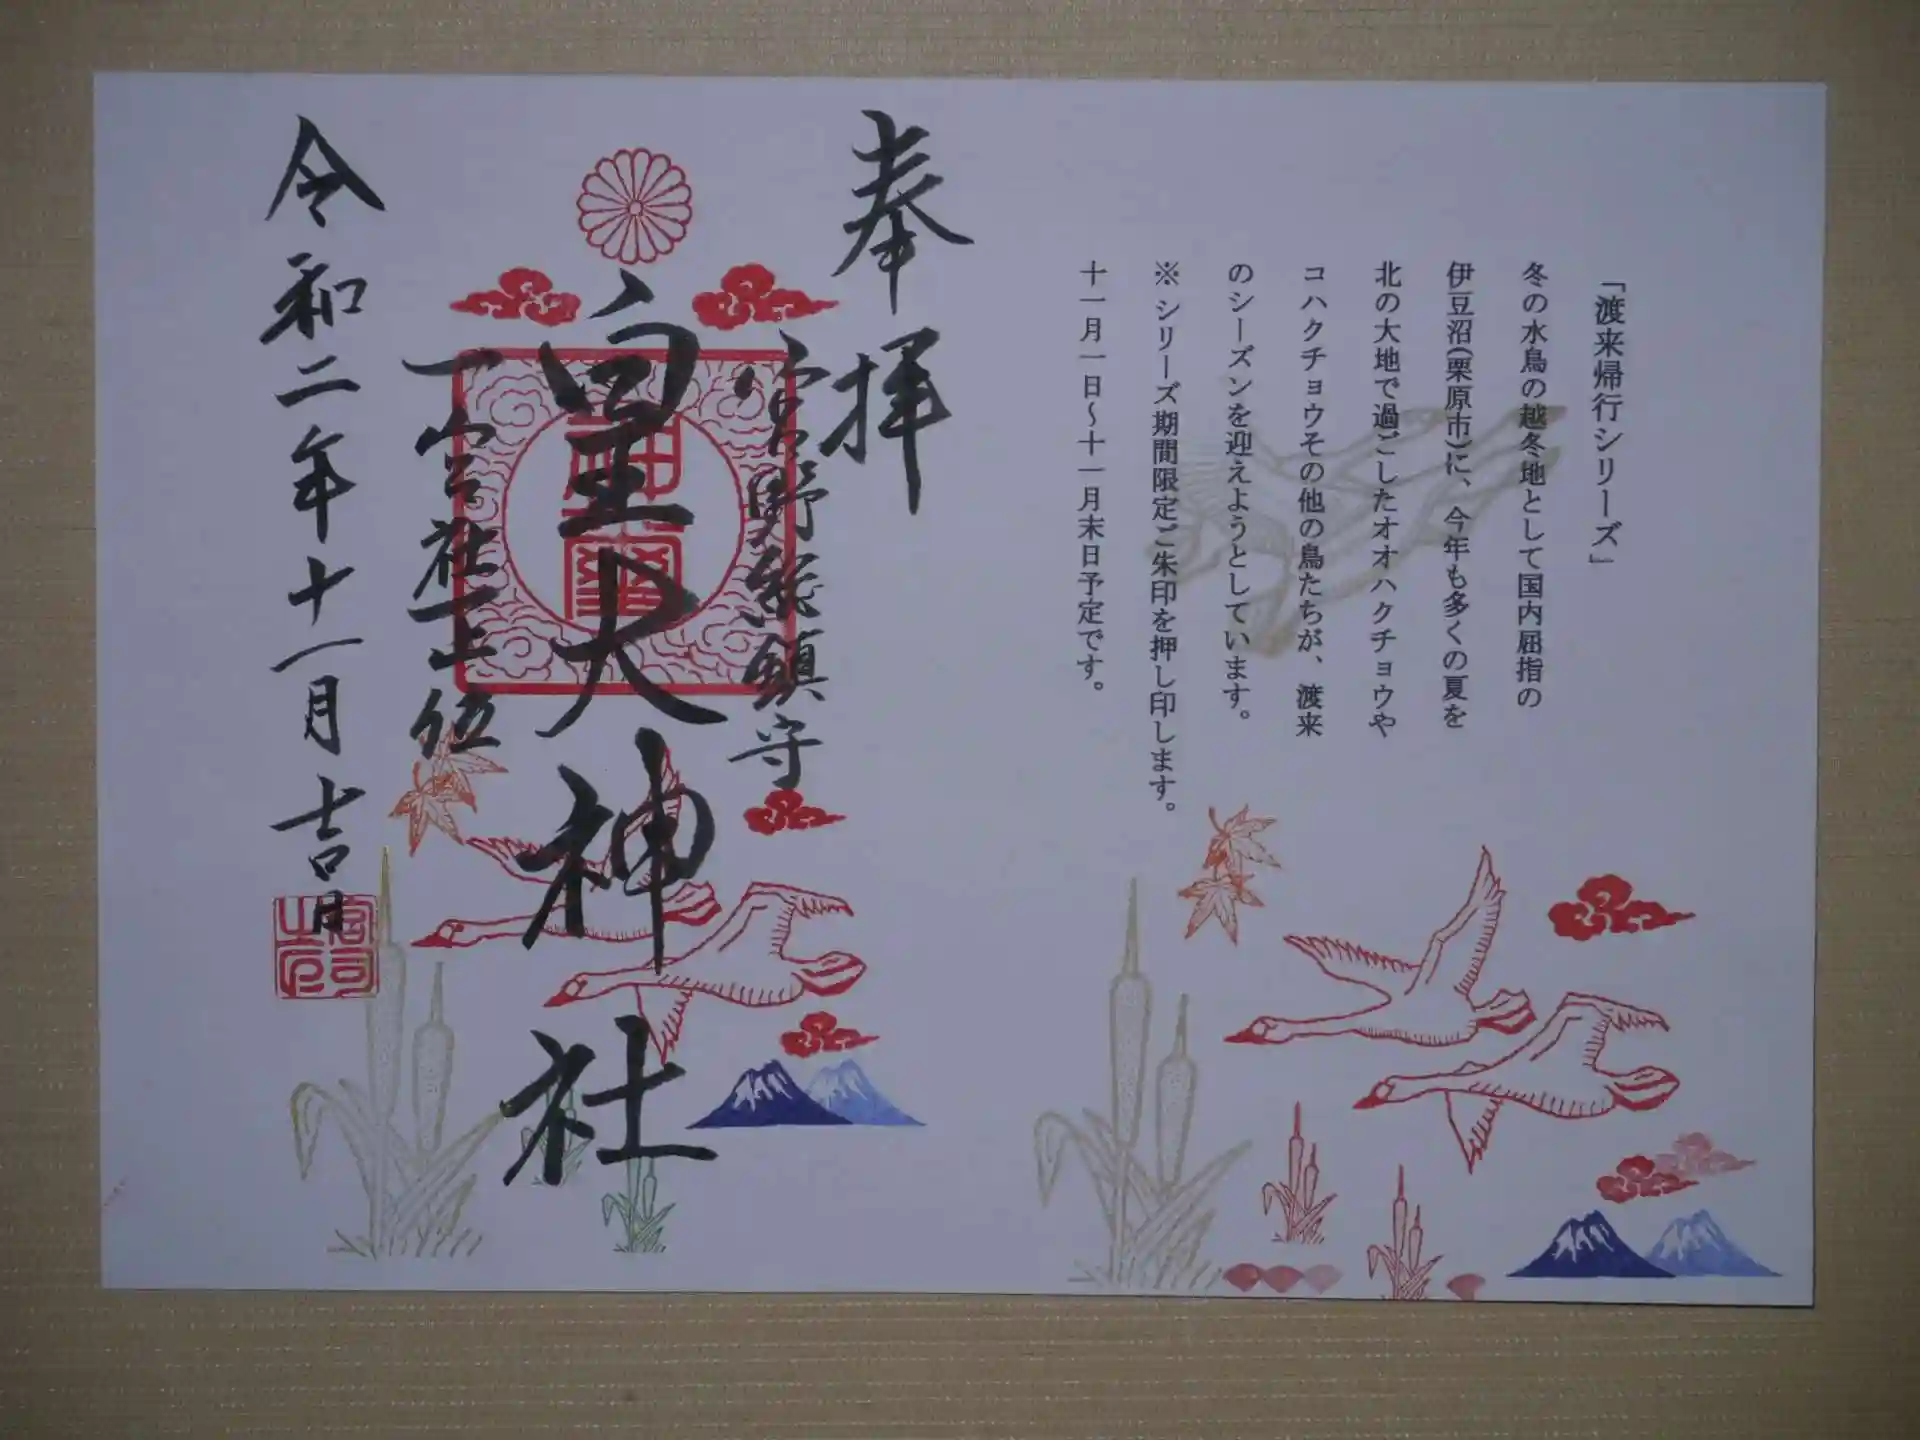 「渡来帰行シリーズ」
冬の水鳥の越冬地として国内屈指の
伊豆沼(栗原市)に、今年も多くの夏を
北の大地で過ごしたオオハクチョウや
コハクチョウその他の鳥たちが、渡来
のシーズンを迎えようとしています。
※シリーズ期間限定ご朱印を押し印します。
十一月一日～十一月末日予定です。
奉拝
宮野総鎮守
皇大神社
一宮社正一位
令和二年十一月吉日